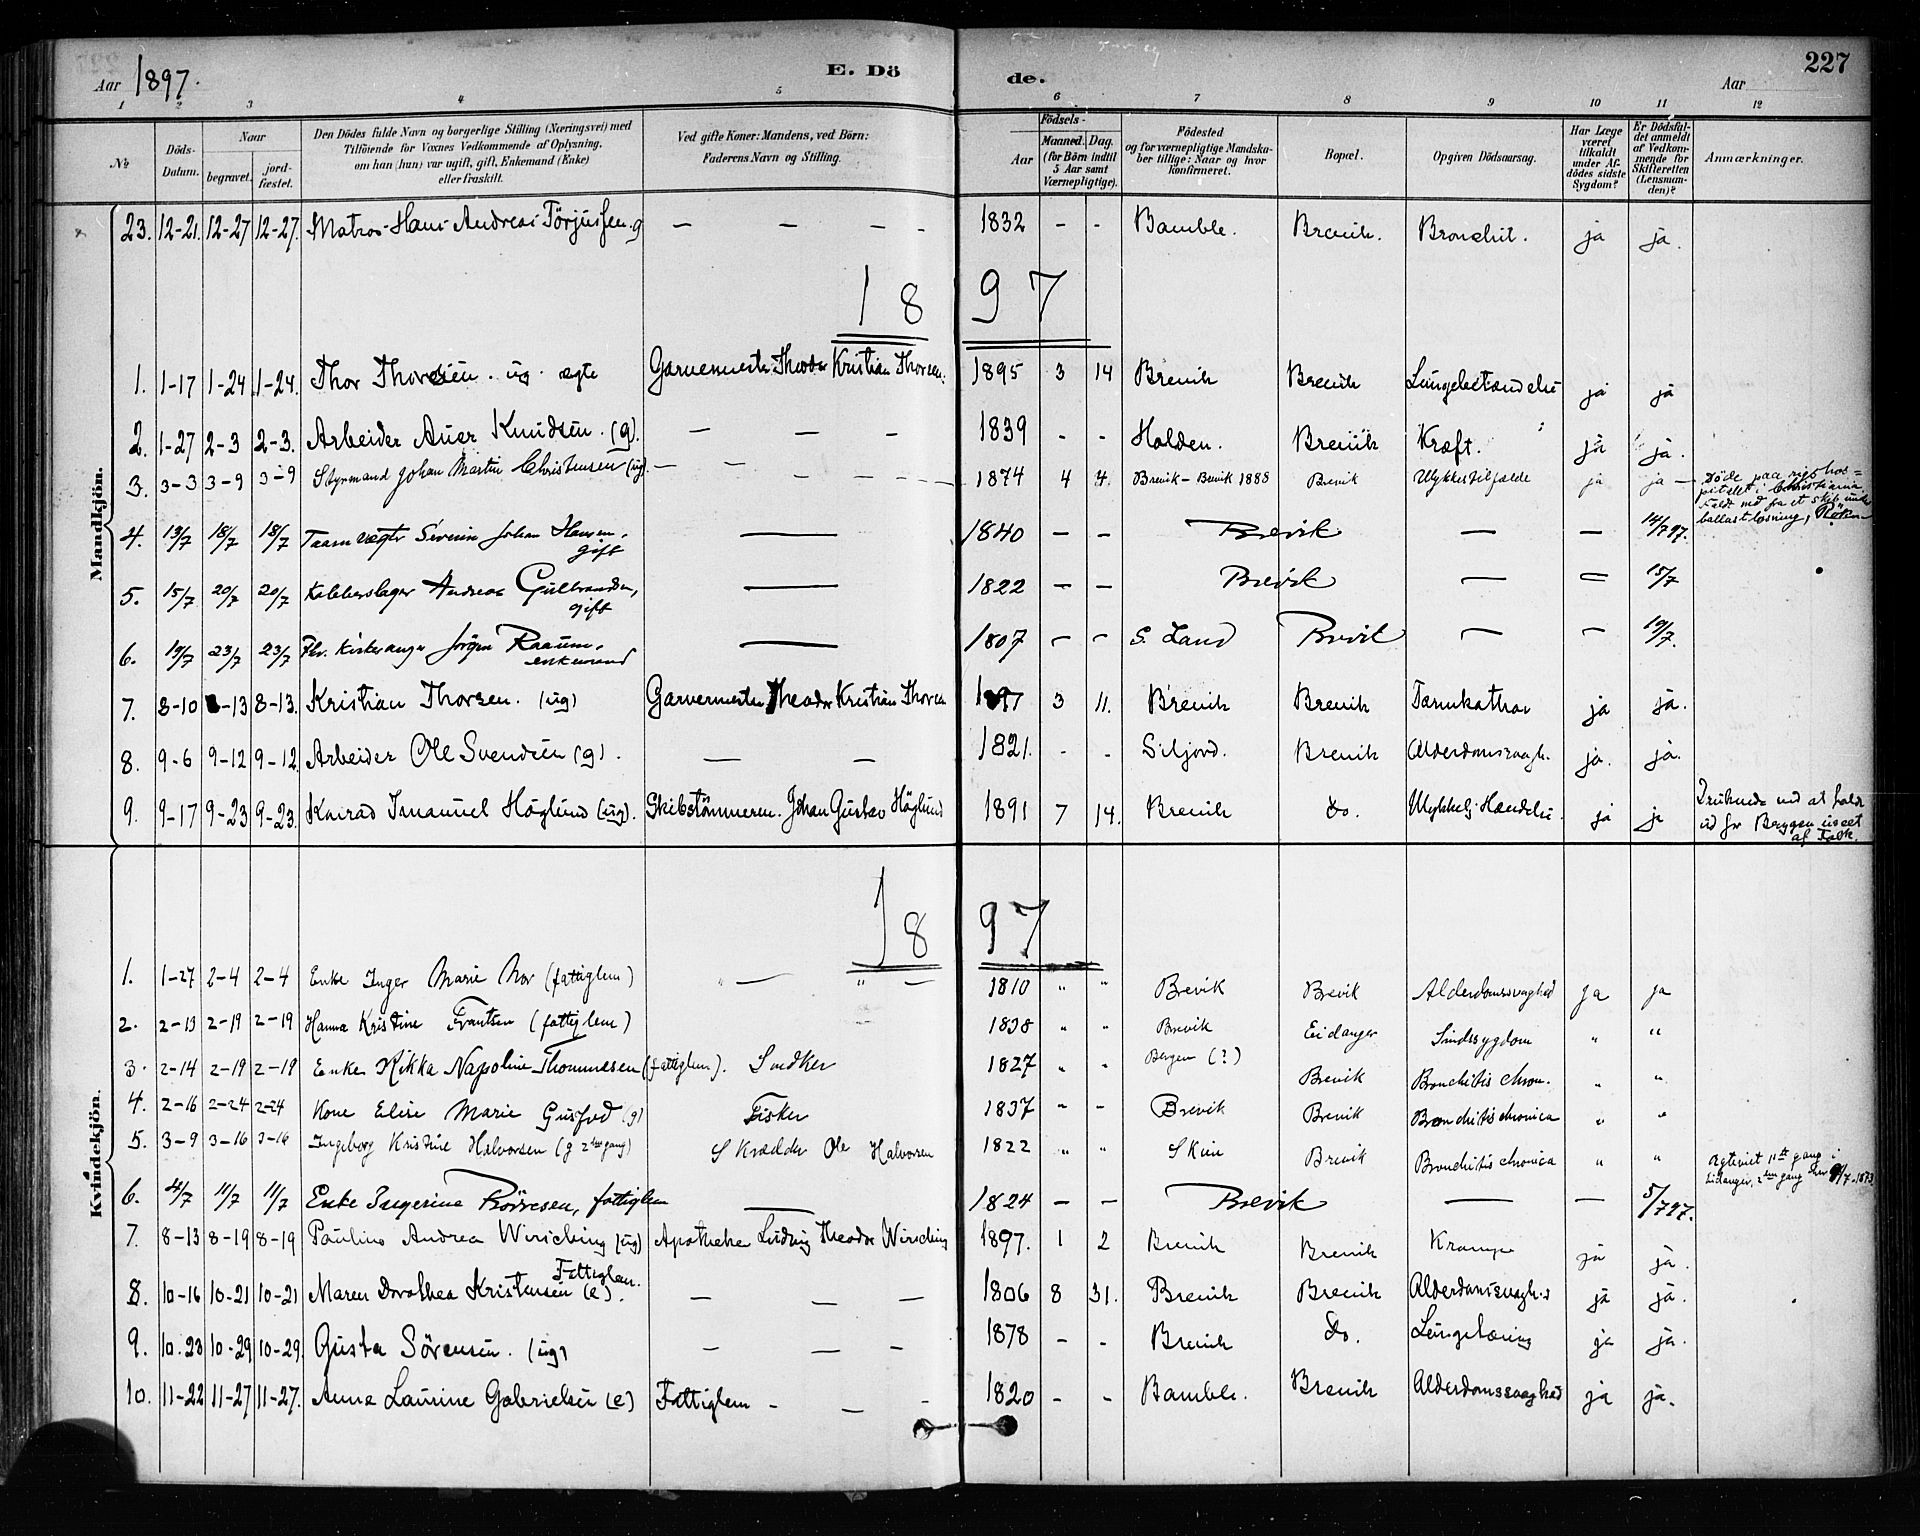 Aar 1897. E. Dö de. Aar 227
1 2 3 4 5 6 7 8 9 10 11 12
№ Döds-Datum. Naar begravet. jord-fæstet. Den Dödes fulde Navn og borgerlige Stilling (Næringsvei) med Tilföiende for Voxnes Vedkommende af Oplysning, om han (hun) var ugift, gift, Enkemand (Enke) eller fraskilt. Ved gifte Koner: Mandens, ved Börn: Faderens Navn og Stilling. Födsels- Aar Maaned. Dag. (for Börn indtil 5 Aar samt Værnepligtige). Födested og for værnepligtige Mandskaber tillige: Naar og hvor konfirmeret. Bopæl. Opgiven Dödsaarsag. Har Læge været tilkaldt under Afdödes sidste Sygdom? Er Dödsfaldet anmeldt af Vedkommende for Skifteretten (Lensmanden)? Anmærkninger.
Mandkjön.
23. 12-21. 12-27 12-27. Matros Hans Andreas Törjusen. g — — - - 1832 - - Bamble. Brevik. Bronchit. ja ja.
18 97
1. 1-17 1-24. 1-24. Thor Thorsen. ug. ægte Garvermester Theodor Kristian Thorsen. 1895 3 14 Brevik Brevik Lungebetændelse ja ja
2. 1-27 2-3 2-3. Arbeider Auer Knudsen. (g). — — - 1839 - - Holden. Brevik Kræft. ja ja.
3. 3-3 3-9 3-9 Styrmand Johan Martin Christensen (ug). — - - - 1874 4 4. Brevik - Brevik 1888 Brevik Ulykkestilfælde ja ja — Döde paa rigshos=
pitalet i Christiania.
Faldt ned fra et skib under
ballastlosning,
4. 13/7 18/7 18/7 Taarnvægter Severin Johan Hansen, gift — 1840 - - Brevik — — 14/7 97.
5. 15/7 20/7 20/7 Kobberslager Andreas Gulbrandsen, gift — 1822 - - Brevik — = 15/7
6. 19/7 23/7 23/7 Fhv. kirkesanger Jörgen Raaum, enkemand — 1807 - - S. Land Brevik — — 19/7.
7. 8-10 8-13 8-13. Kristian Thorsen. (ug) Garvermester Theodor Kristian Thorsen 1897 3 11. Brevik Brevik Tarmkatthar ja ja.
8. 9-6 9-12 9-12. Arbeider Ole Svendsen (g). — — 1821. - - Siljord. Brevik Alderdomssvagh. ja. ja.
9. 9-17 9-23 9-23. Konrad Imanuel Höglund (ug). Skibstömmerm. Johan Gustav Höglund 1891 7 14. Brevik do. Ulykkelig Hændelse. ja ja Druknede ved at falde
ud for Bryggen uset
af Folk.
Kvindekjön.
18 97
1. 1-27 2-4 2-4 Enke Inger Marie Mor (fattiglem) " — " — 1810 " " Brevik Brevik Alderdomssvaghed ja ja
2. 2-13 2-19 2-19 Hanna Kristine Frantsen (fattiglem) 1838 " " Brevik Eidanger Sindssygdom " "
3. 2-14 2-19 2-19 Enke Rikka Napoline Thommesen (fattiglem). Snedker 1827 " " Bergen (?) Brevik Bronchitis chron. " "
4. 2-16 2-24 2-24 Kone Elise Marie Gusfred (g) Fisker 1837 " - Brevik Brevik Bronchitis chronica " "
5. 3-9 3-16 3-16 Ingeborg Kristine Halvorsen (g 2den gang) Skrædder Ole Halvorsen 1822 " " Skien Brevik Bronchitis chronica " " Ægteviet 1ste gang i
Eidanger, 2den gang den /7-1873
6. 4/7 11/7 11/7 Enke Ingerine Törresen, fattiglem — 1824 - - Brevik — — 5/7 97.
7. 8-13 8-19 8-19 Pauline Andrea Wirsching (ug) Apotheker Ludvig Theodor Wirsching 1897. 1 2 Brevik Brevik Krampe ja ja.
8. 10-16 10-21 10-21 Maren Dorothea Kristensen (e). Fattiglem. — — — 1806 8 31. Brevik Brevik Alderdomssvagh. ja ja.
9. 10-23 10-29 10-29. Gusta Sörensen. (ug) — — - 1878 - - Brevik do. Lungetæring ja ja.
10. 11-22 11-27 11-27. Anne Laurine Gabrielsen (e) Fattiglem - — - 1820 - - Bamble. Brevik Alderdomssvaghed ja ja.